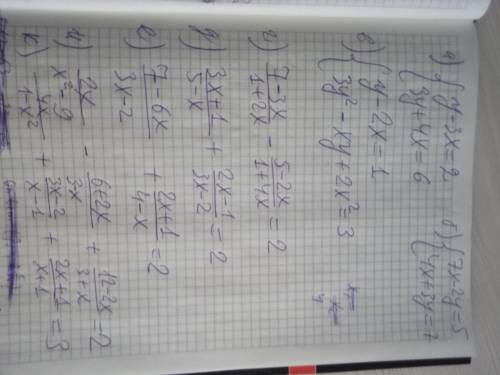 а) { y-3x=2
3y+4x=6
б) { 7x-2y=5
4x+3y=7
в) { y-2x=1
3y²-xy+2x²=3
г) (7-3x)/(1+2x) - (5-2x)/(1+4x) = 2
д) (3x+1)/(5-x) + (2x-1)/(3x-2) = 2
е) (7-6x)/(3x-2) + (2x+1)/(4-x) = 2
и) 2x/(x²-9) - (6+2x)/(3-x) + (12-2x)/(3+x) = 2
к) 4x/(1-x²) + (3x-2)/(x-1) + (2x+1)/(x+1) = 3